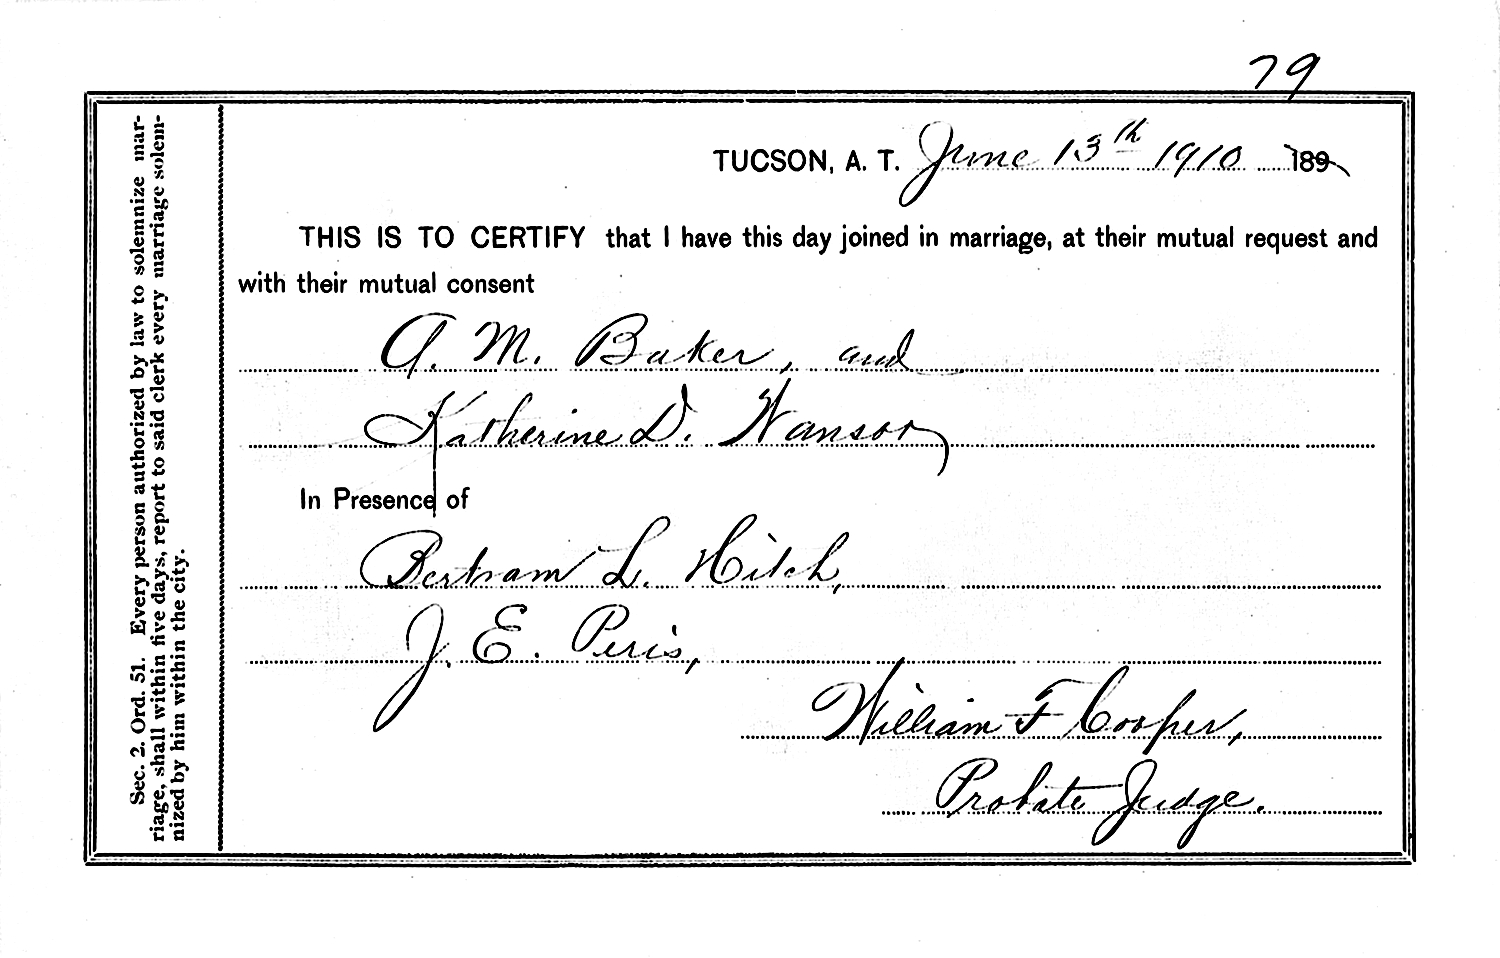 79
TUCSON, A. T. June 13th 1910 189
THIS IS TO CERTIFY that I have this day joined in marriage, at their mutual request and
with their mutual consent
A. M. Baker, and
Katherine D. Wansor
In Presence of
Bertram L. Hitch,
J. E. Peris,
William F Cooper,
Probate Judge.
Sec. 2. Ord. 51. Every person authorized by law to solemnize mar-
riage, shall within five days, report to said clerk every marriage solem-
nized by him within the city.